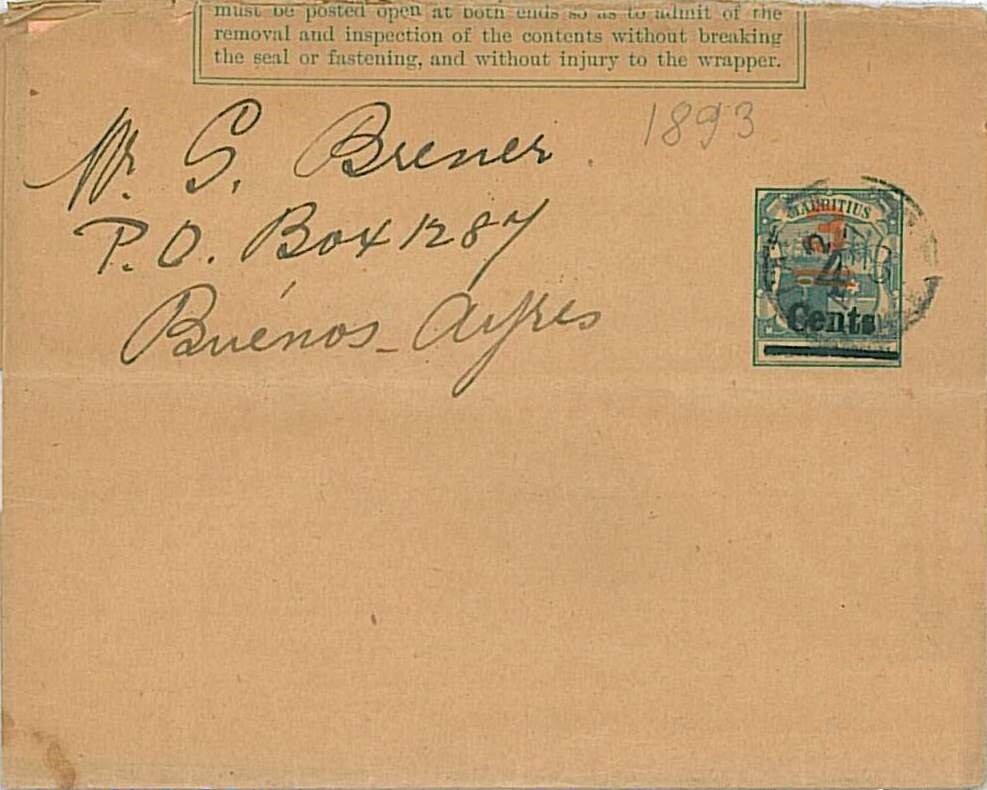 must be posted open at both ends so as to admit of the
removal and inspection of the contents without breaking
the seal or fastening, and without injury to the wrapper.
1893
Mr. S. Brener.
P.O. Box 1287
Buénos-Ayres
MAURITIUS
4
Cents